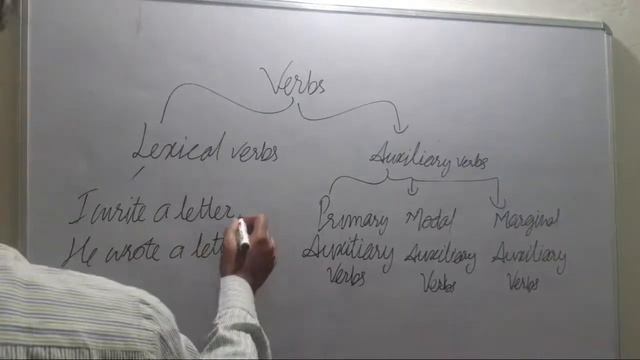 Verbs
Lexical verbs
Auxiliary verbs
I write a letter.
He wrote a lett
Primary Auxiliary Verbs
Modal Auxiliary Verbs
Marginal Auxiliary Verbs